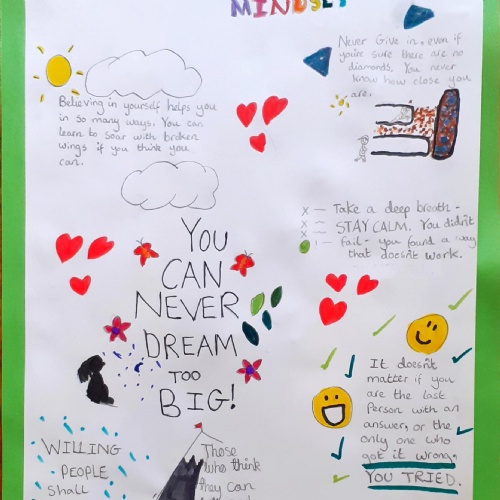 MINDSET
Believing in yourself helps you
in so many ways. You can
learn to soar with broken
wings if you think you
can.
Never Give in, even if
you're sure there are no
diamonds. You never
know how close you
are.
x — Take a deep breath -
x — STAY CALM. You didn't
x — fail - you found a way
that doesn't work.
YOU
CAN
NEVER
DREAM
TOO
BIG!
It doesn't
matter if you
are the last
Person with an
answer, or the
only one who
got it wrong,
YOU TRIED.
WILLING
PEOPLE
Shall
Those
who think
they can